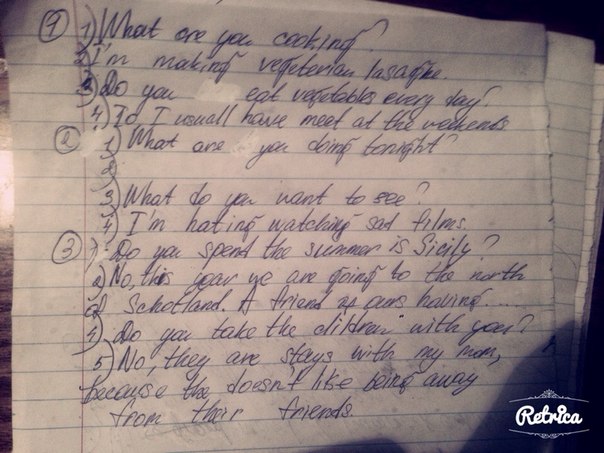 1 1) What are you cooking?
2) I'm making vegeterian lasagne.
3) Do you eat vegetables every day?
4) I usuall have meet at the weekends
2 1) What are you doing tonight
2
3) What do you want to see?
4) I'm hating watching sad films.
3 1) Do you spend the summer is Sicily?
2) No, this year we are going to the north
of Schotland. A friend of ours having ....
4) Do you take the children with you?
5) No, they are stays with my mom,
because the doesn't like being away
from their friends.
Retrica